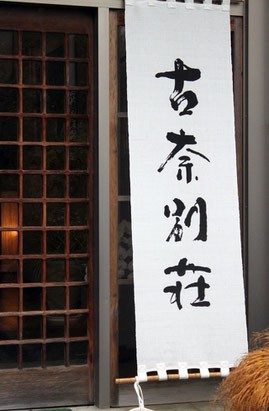 古奈別荘